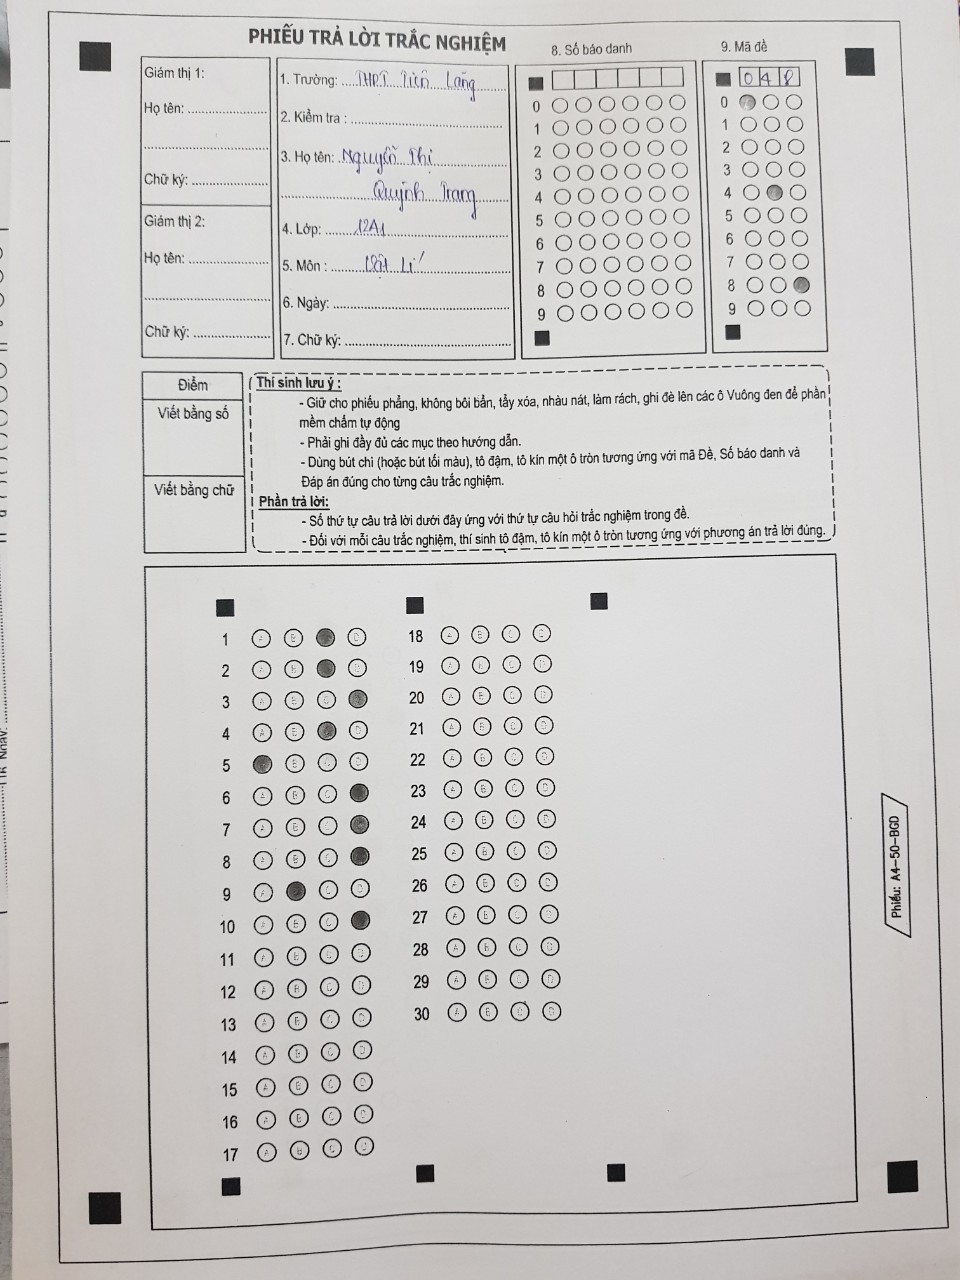 PHIẾU TRẢ LỜI TRẮC NGHIỆM
Giám thị 1:
Họ tên:
Chữ ký:
Giám thị 2:
Họ tên:
Chữ ký:
1. Trường: THPT Tiên Lãng
2. Kiểm tra :
3. Họ tên: Nguyễn Thị
Quỳnh Trang
4. Lớp: 12A1
5. Môn : Vật Lí
6. Ngày:
7. Chữ ký:
8. Số báo danh
0
1
2
3
4
5
6
7
8
9
9. Mã đề
0 4 8
0
1
2
3
4
5
6
7
8
9
Điểm
Viết bằng số
Viết bằng chữ
Thí sinh lưu ý :
- Giữ cho phiếu phẳng, không bôi bẩn, tẩy xóa, nhàu nát, làm rách, ghi đè lên các ô Vuông đen để phần
mềm chấm tự động
- Phải ghi đầy đủ các mục theo hướng dẫn.
- Dùng bút chì (hoặc bút tối màu), tô đậm, tô kín một ô tròn tương ứng với mã Đề, Số báo danh và
Đáp án đúng cho từng câu trắc nghiệm.
Phần trả lời:
- Số thứ tự câu trả lời dưới đây ứng với thứ tự câu hỏi trắc nghiệm trong đề.
- Đối với mỗi câu trắc nghiệm, thí sinh tô đậm, tô kín một ô tròn tương ứng với phương án trả lời đúng.
1 A B D
2 A B D
3 A B C
4 A B D
5 B C D
6 A B C
7 A B C
8 A B C
9 A C D
10 A B C
11 A B C D
12 A B C D
13 A B C D
14 A B C D
15 A B C D
16 A B C D
17 A B C D
18 A B C D
19 A B C D
20 A B C D
21 A B C D
22 A B C D
23 A B C D
24 A B C D
25 A B C D
26 A B C D
27 A B C D
28 A B C D
29 A B C D
30 A B C D
Phiếu: A4-50-BGD